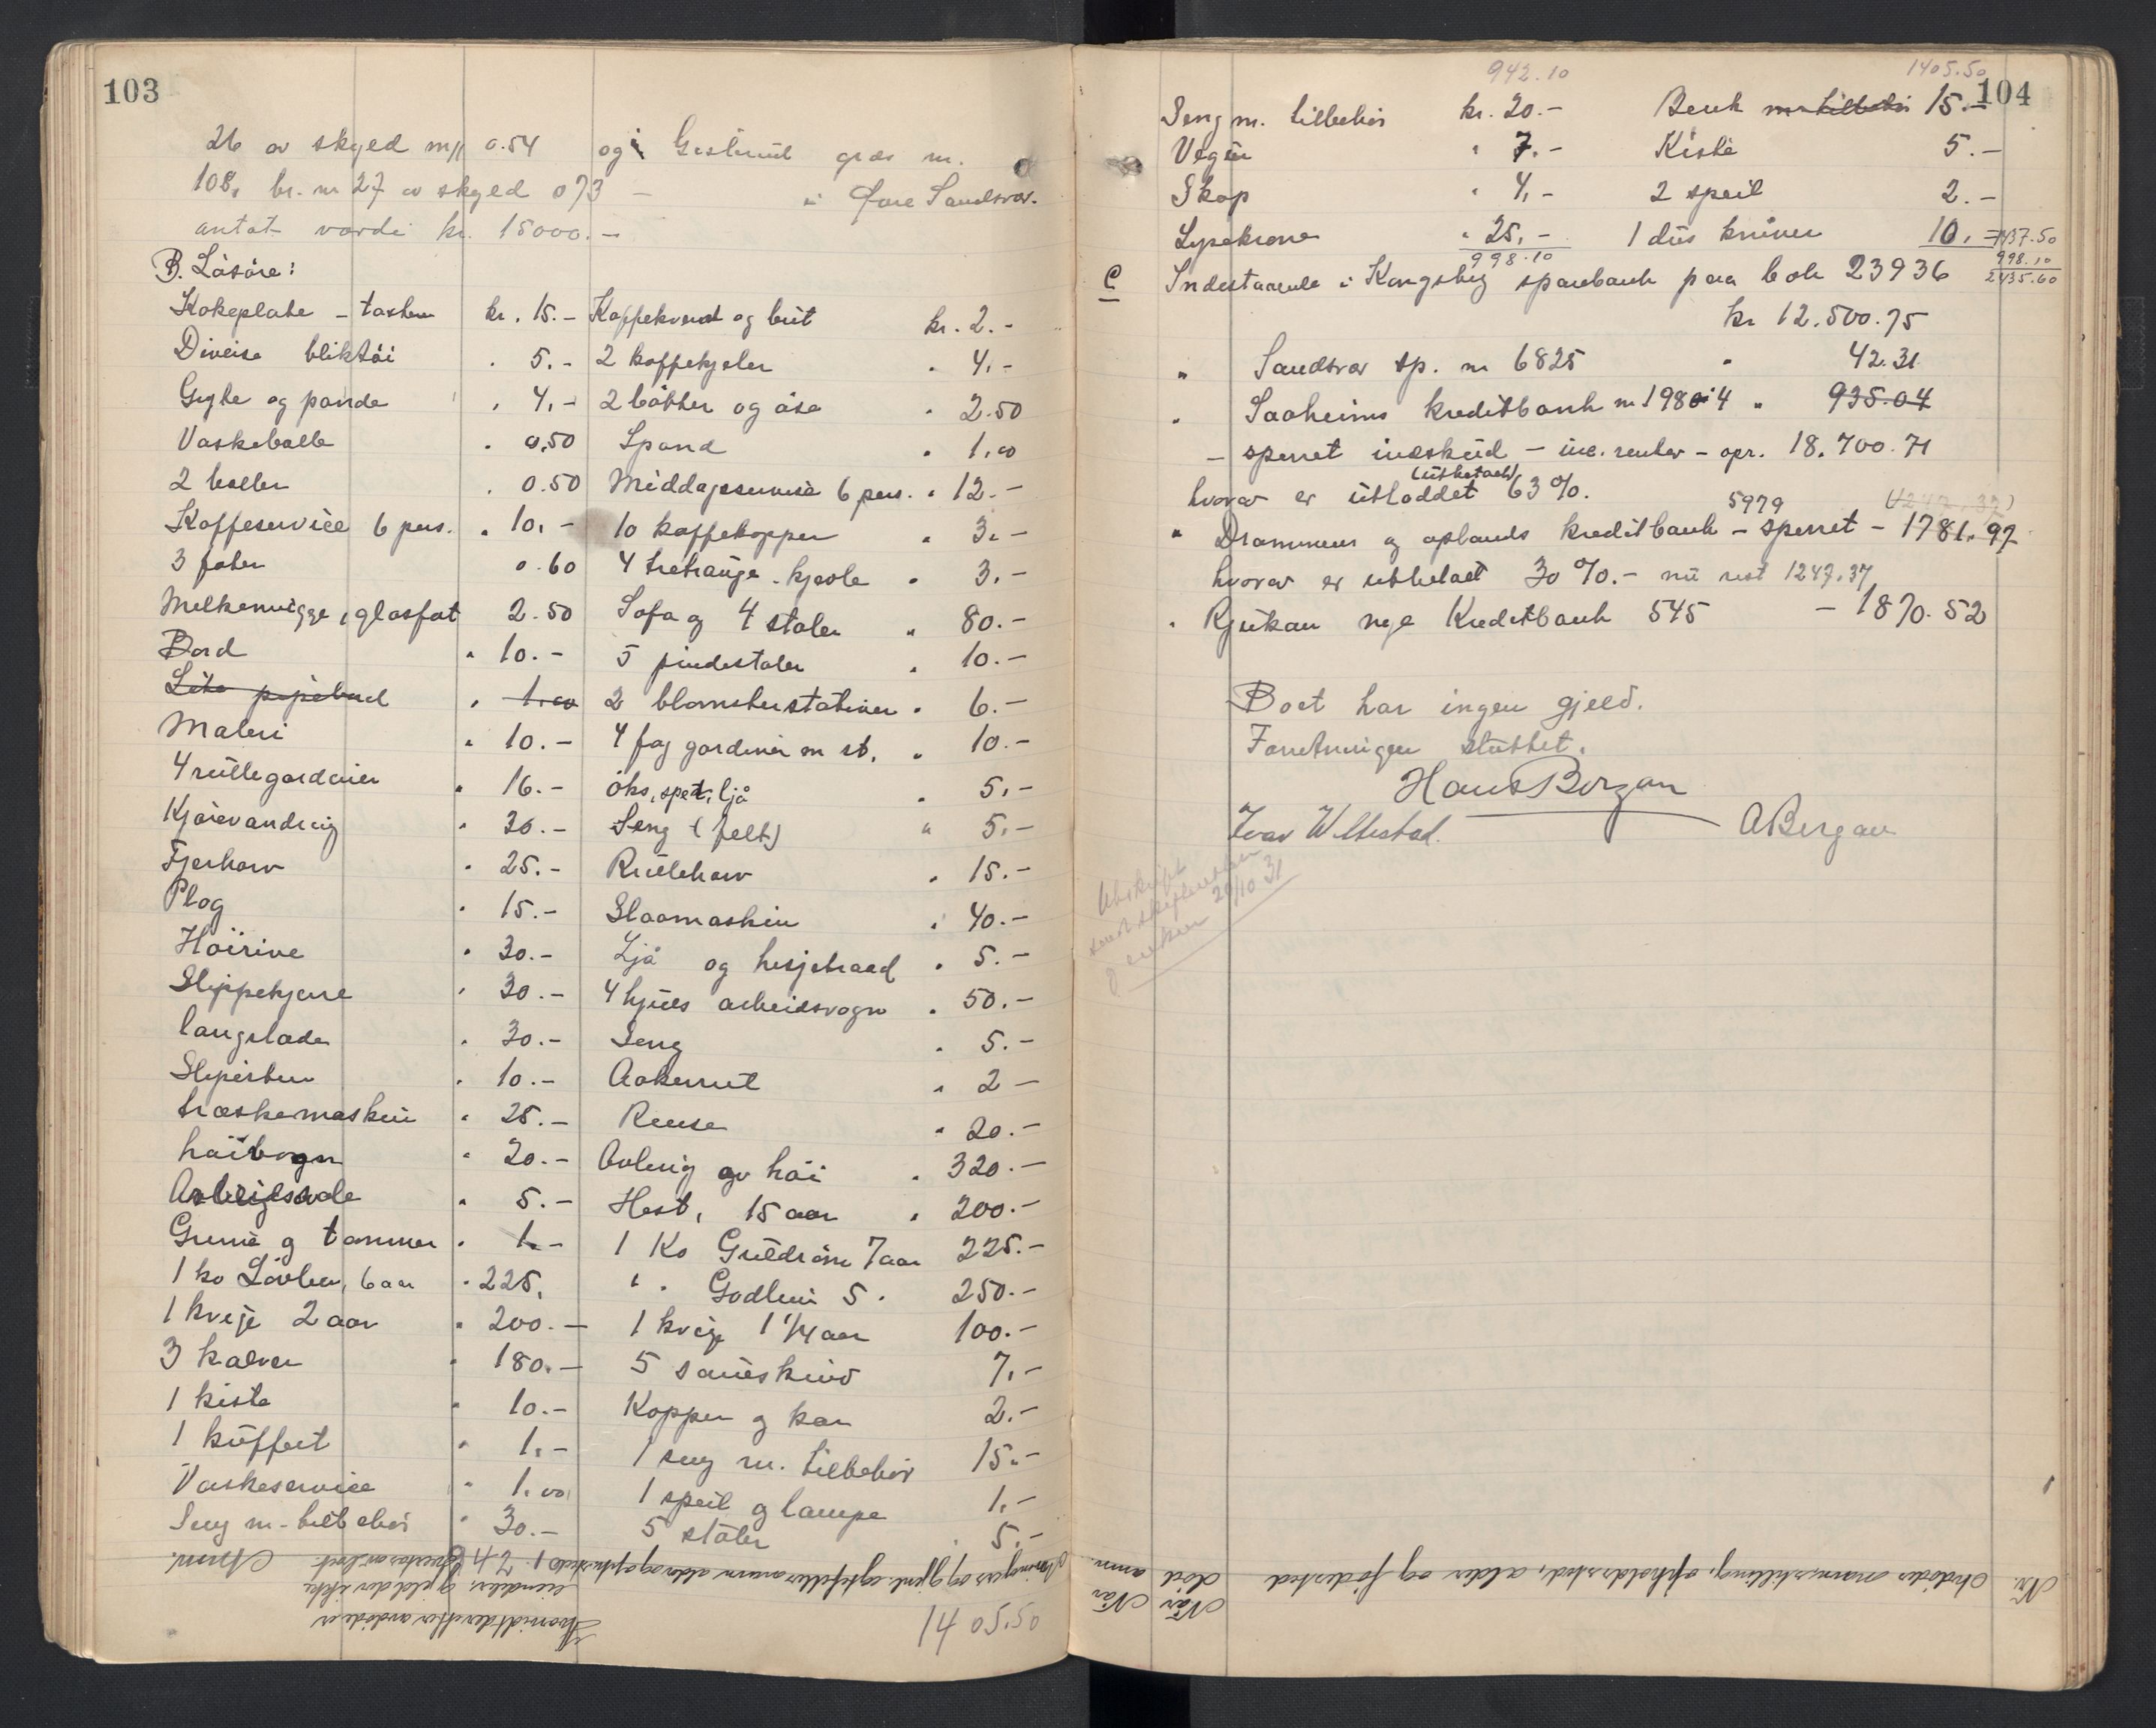 103
26 av skyld m/ 0.54 og i gnr. nr.
108, br. nr 27 av skyld 073 – i Øvre Sandsvær.
antat værdi kr. 15000.–
B. Løsøre:
Kokeplate – kr. 15.– Kaffekvern og kr. 2.–
Diverse bliktöi " 5.– 2 kaffekjeler " 4.–
Gryte og pande " 4.– 2 bötter og öse " 2.50
Vaskeballe " 0.50 Spand " 1.00
2 boller " 0.50 Middagsservise 6 pers. " 12.–
Kaffeservice 6 pers. " 10.– 10 kaffekopper " 3.–
3 fater 0.60 4 kjevle " 3.–
Melkemugge, glasfat 2.50 Sofa og 4 stoler " 80.–
Bord " 10.– 5 pindestoler " 10.–
" 1.00 2 blomsterstativer " 6.–
Maleri " 10.– 4 fag gardiner m. st. " 10.–
4 rullegardiner " 16.– öks, spet, ljå " 5.–
" 30.– Seng (felt) " 5.–
Fjerharv " 25.– Rulleharv " 15.–
Plog " 15.– Slaamaskin " 40.–
Höirive " 30.– Ljå og hesjetraad " 5.–
Slippekjerre " 30.– 4 hjuls arbeidsvogn " 50.–
langslede " 30.– Seng " 5.–
Slipesten " 10.– 2 –
træskemaskin " 25.– Rense " 20.–
höivogn " 20.– Avling av höi " 320.–
Arbeidssele " 5.– Hest, 15 aar " 200.–
og tömmer " 1.– 1 Ko Guldrosn 7 aar 225.–
1 ko Lövlin, 6 aar " 225. " " Godlin 5 " 250.–
1 kvige 2 aar " 200.– 1 kvige 1 1/4 aar 100.–
3 kalver " 180.– 5 saueskind 7.–
1 kiste " 10.– Kopper og kar 2.–
1 kuffert " 1.– 1 seng m. tilbehör 15.–
Vaskeservice " 1.00 1 speil og lampe 1.–
Seng m. tilbehör " 30.– 5 stoler " 5.–
1405.50
104
942.10 1405.50
Seng m. tilbehör kr. 20.– Benk m. tilbehör 15.–
" 7.– Kiste 5.–
Skap " 4.– 2 speil 2.–
Lysekrone " 25.– 1 dus kniver 10.– 1437.50
998.10 998.10
2435.60
C Indestaaende i Kongsberg sparebank paa bok 23936
kr 12.500.75
" Sandsvær sp. nr 6825 " 42.31
" Saaheims kreditbank nr 1980 4 " 935.04
– sperret indskud – inc. renter – opr. 18.700.71
(utbetalt)
hvorav er utloddet 63 %.
5979
" Drammens og oplands kreditbank – sperret – 1781.97
hvorav er utbetalt 30 %. – nu rest 1247.37
" Rjukan nye Kreditbank 545 – 1870.52
Boet har ingen gjeld.
Forretningen sluttet.
Hans Bergan
Ivar A Bergan
Avskrift
sendt
29/10 31
Nr. Avdödes navn, stilling, opholdssted, alder og födested Når död Når anm.
Anm.